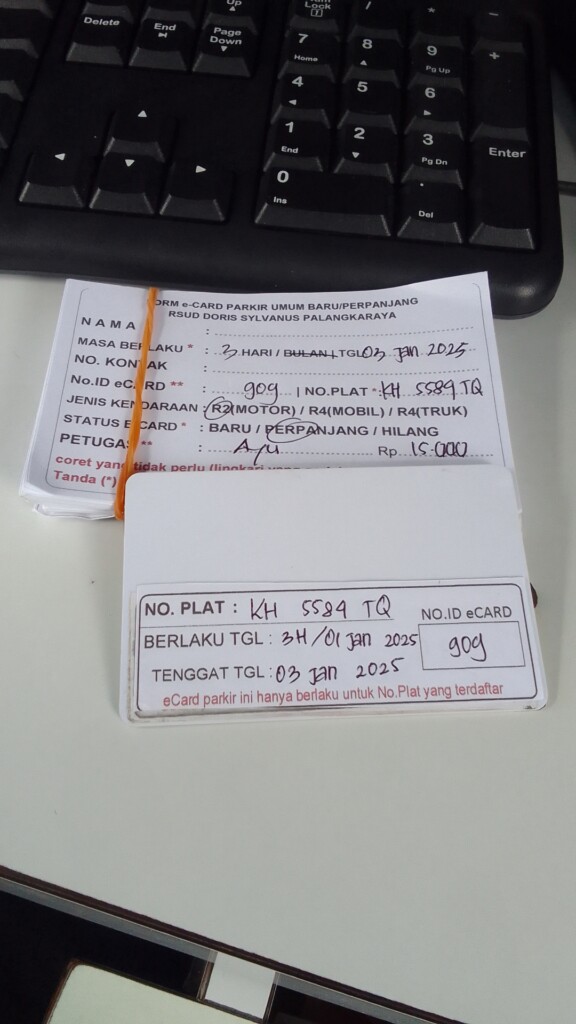 Delete
End
Up
Page
Down
Lock
/
*
-
7
Home
8
9
Pg Up
+
4
5
6
1
End
2
3
Pg Dn
Enter
0
Ins
.
Del
ORM e-CARD PARKIR UMUM BARU/PERPANJANG
RSUD DORIS SYLVANUS PALANGKARAYA
NAMA :
MASA BERLAKU * : 3 HARI / BULAN | TGL 03 Jan 2025
NO. KONTAK :
No.ID eCARD ** : 909 | NO.PLAT * KH 5589 TQ
JENIS KENDARAAN : R2(MOTOR) / R4(MOBIL) / R4(TRUK)
STATUS ECARD * : BARU / PERPANJANG / HILANG
PETUGAS ** : Ayu Rp 15.000
coret yang tidak perlu (lingkari
Tanda (*)
NO. PLAT : KH 5589 TQ
NO.ID eCARD
BERLAKU TGL : 3H/01 Jan 2025
909
TENGGAT TGL : 03 Jan 2025
eCard parkir ini hanya berlaku untuk No.Plat yang terdaftar